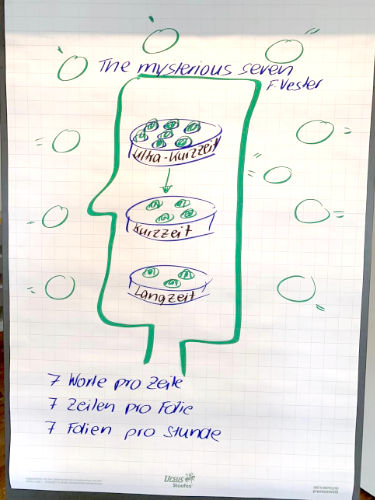 The mysterious seven
F. Vester
Ultra-Kurzzeit
Kurzzeit
Langzeit
7 Worte pro Zeile
7 Zeilen pro Folie
7 Folien pro Stunde
URSUS
Staufen